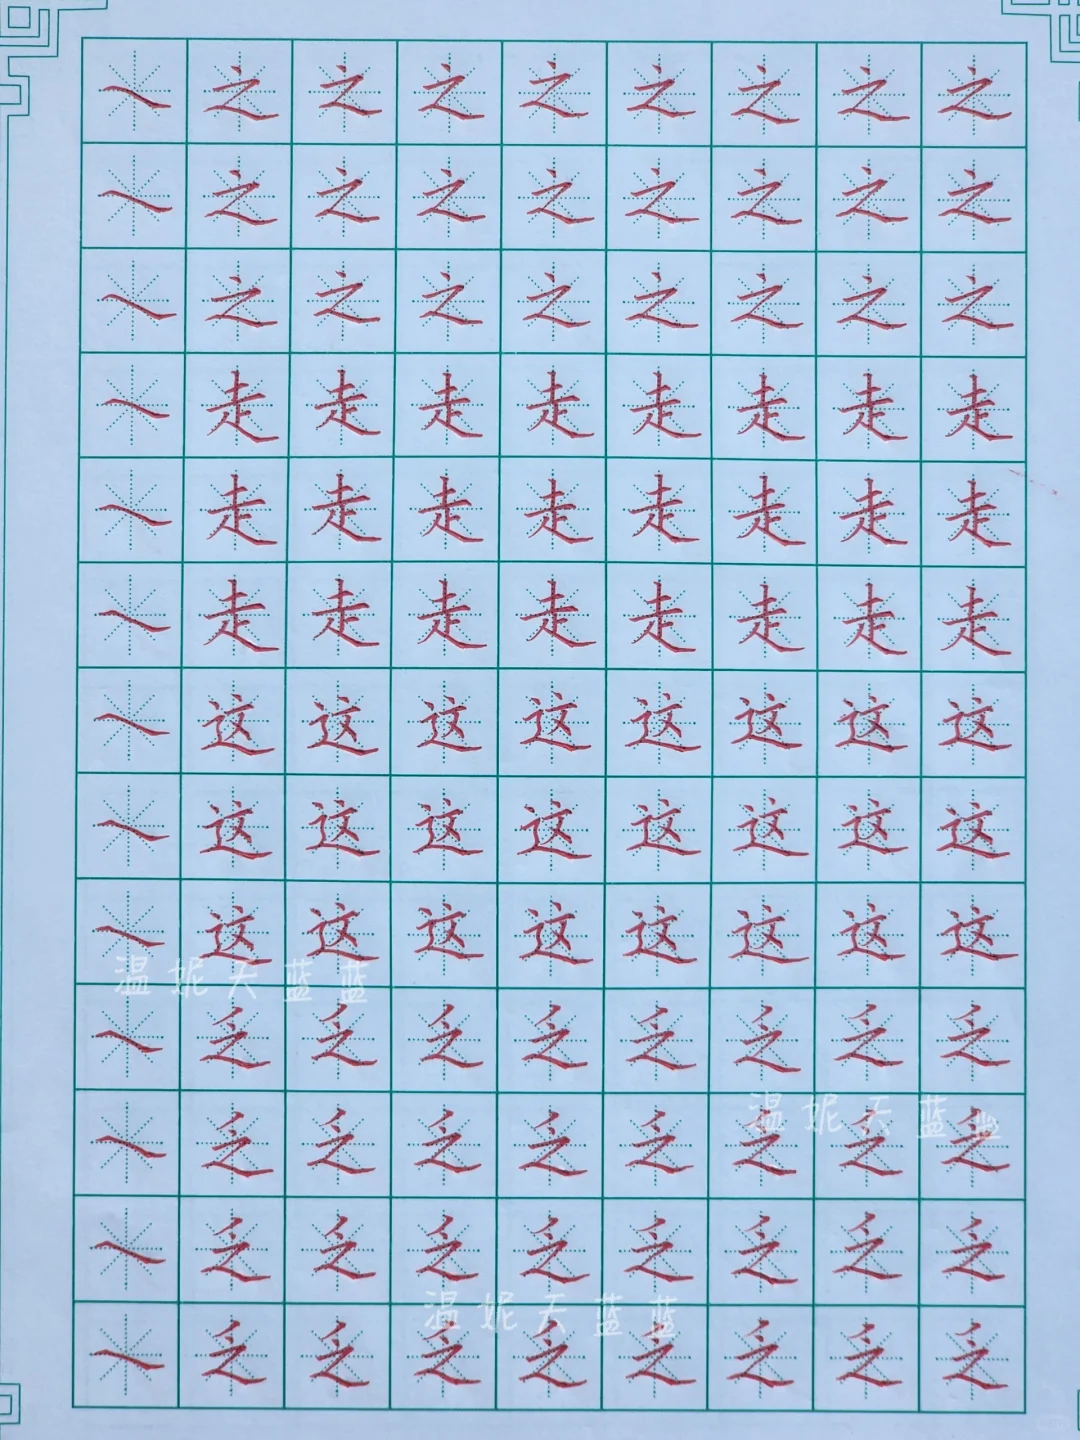 之之之之之之之之
之之之之之之之之
之之之之之之之之
走走走走走走走走
走走走走走走走走
走走走走走走走走
这这这这这这这这
这这这这这这这这
这这这这这这这这
温妮天蓝蓝
乏乏乏乏乏乏乏乏
温妮天蓝蓝
乏乏乏乏乏乏乏乏
乏乏乏乏乏乏乏乏
温妮天蓝蓝
乏乏乏乏乏乏乏乏